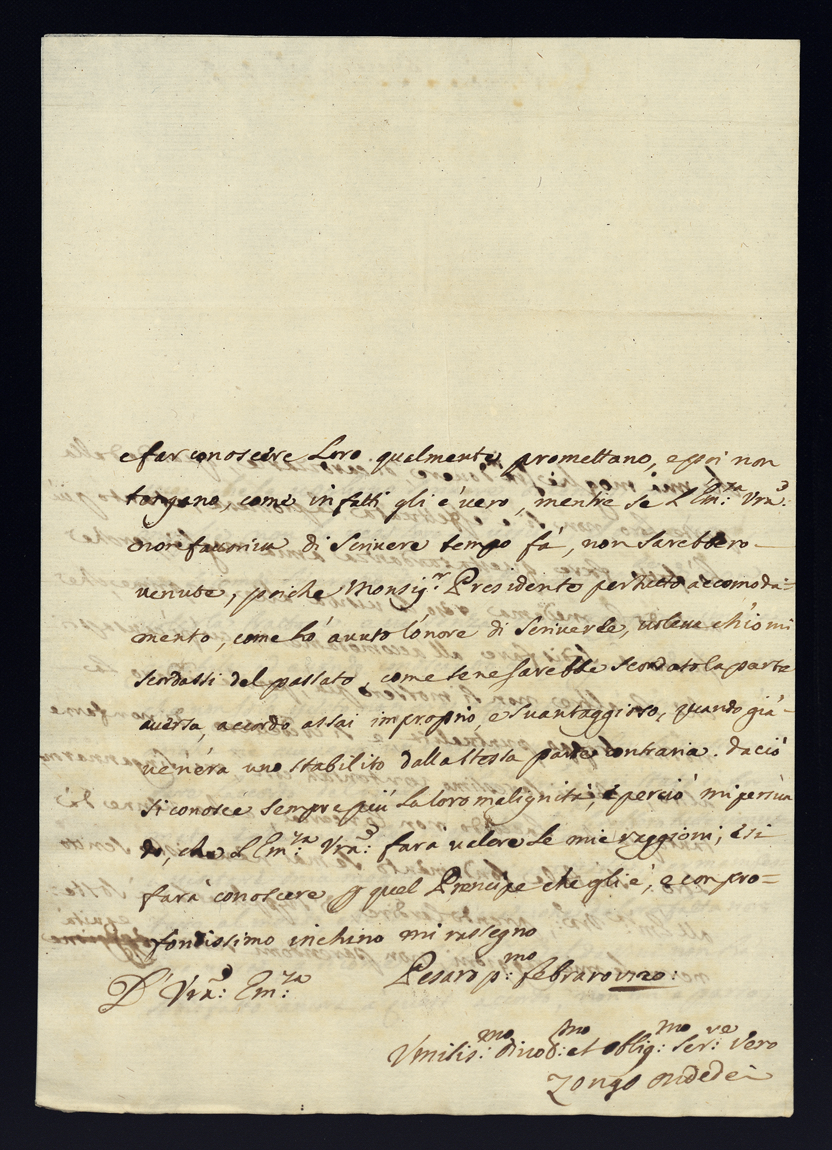 e far conoscere Loro qualmente promettano, e poi non
tengano, come in fatti gli é vero, mentre se L'Em:za Vra:
mi favoriva di scrivere tempo fá, non sarebbero
venute, poiche Monsig:r Presidente per detto accomoda=
mento, come hó avuto l'onore di scriverle, voleva ch'io mi
scordassi del passato, come se ne sarebbe scordato la parte
aversa, accordo assai improprio, e svantaggioso, quando giá
ve n'era uno stabilito dalla stessa parte contraria. da ció
si conosce sempre piú la loro malignitá, e perció mi persua
do, che L'Em:za Vra: fará valere le mie raggioni, e si
fará conoscere p quel Prencipe che gli é, e con pro=
fondissimo inchino mi rassegno
D' Vra: Em:za Pesaro p:mo febraro 1720:
Umilis:mo Divo:mo et oblig:mo ser:ve vero
Zongo Ondedei